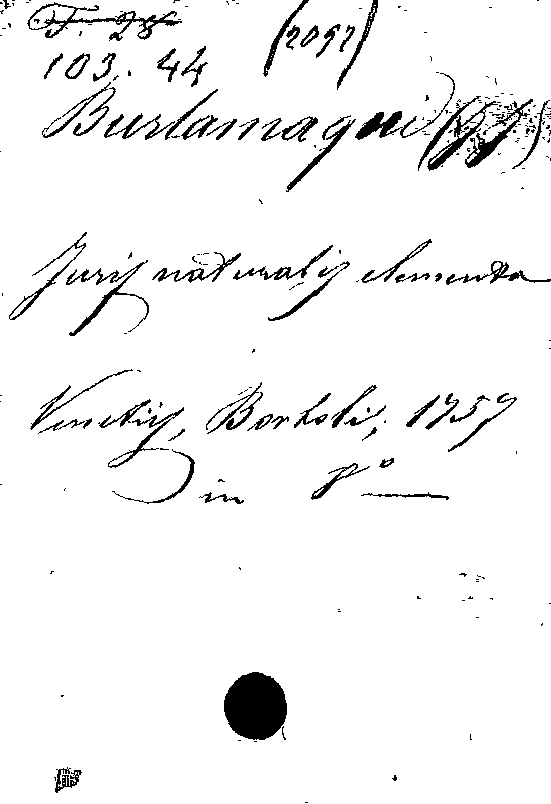 F. 28
103. 44 (2092)
Burlamaqui (J J)
Juris naturalis elementa
Venetiis, Bortoli, 1757
in 8°